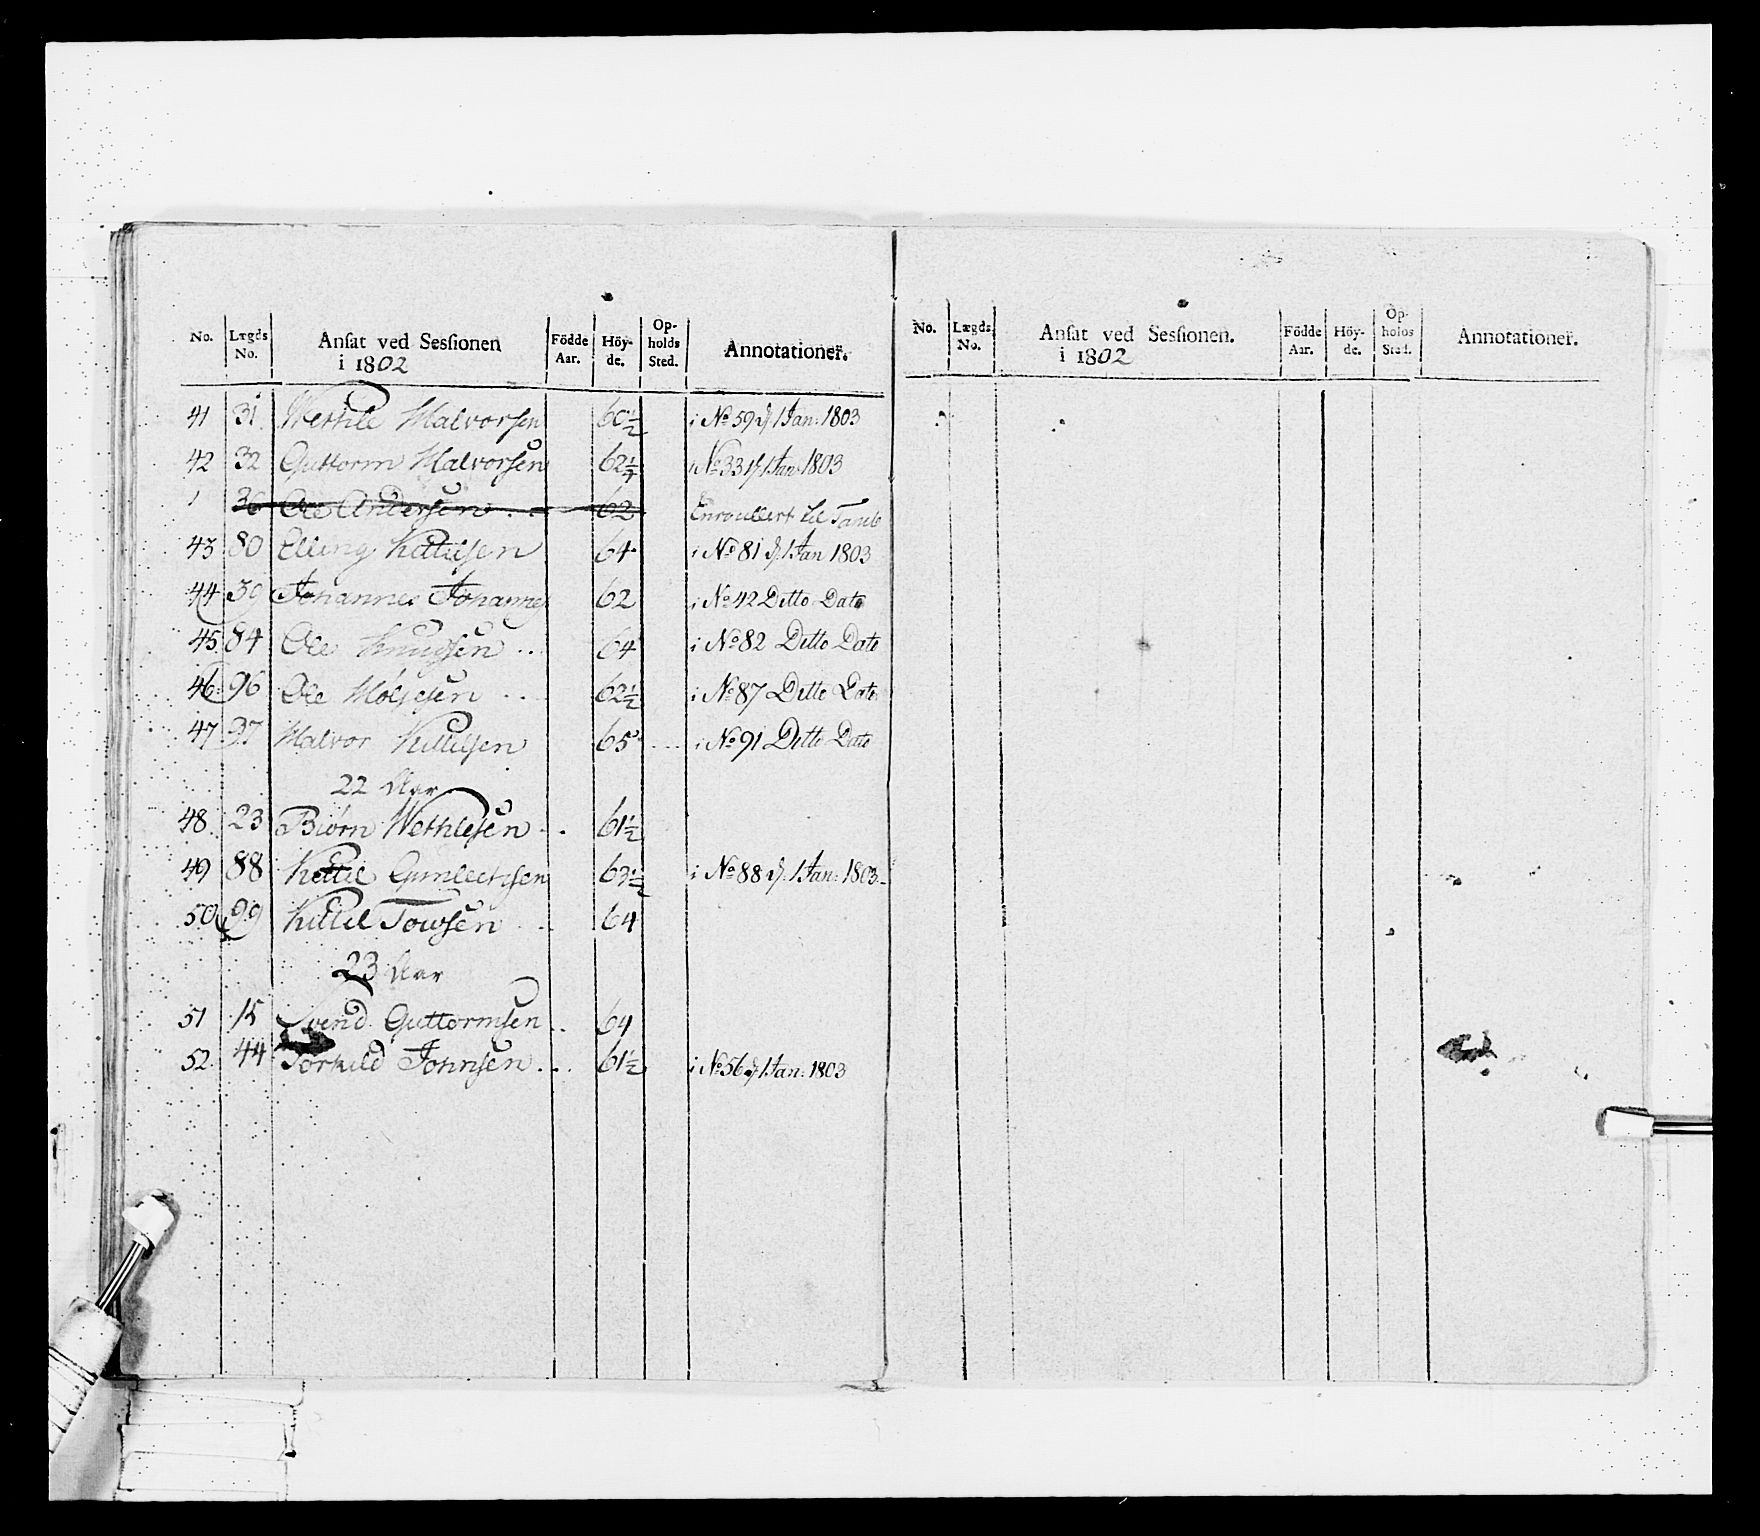 No. Lægds No. Ansat ved Sessionen i 1802 Födde Aar. Höyde. Opholds Sted. Annotationer.
41 31 Wethle Halvorsen 60½ i No 59 d/ 1 Jan: 1803
42 32 Guttorm Halvorsen 62½ i No 33 d/ 1 Jan: 1803
36 Ole Andersen 62 Enroullert til Tamb
43 80 Elling Kittilsen 64 i No 81 d/ 1 Jan 1803
44 39 Johannes Johannes 62 i No 42 Ditto Dato
45 84 Ole Knudsen 64 i No 82 Ditto Dato
46 96 Ole 62½ i No 87 Ditto Dato
47 37 Halvor Kittilsen 65 i No 91 Ditto Dato
22 Aar
48 23 Biørn Wethlesen 61½
49 88 Kittil Gunleechsen 63½ i No 88 d/ 1 Jan: 1803
50 99 Kittil Tovsen 64
23 Aar
51 15 Svend Guttormsen 64
52 44 Torkild Johnsen 61½ i No 56 d/ 1 Jan: 1803
No. Lægds No. Ansat ved Sessionen. i 1802 Födde Aar. Höyde. Opholds Sted. Annotationer.